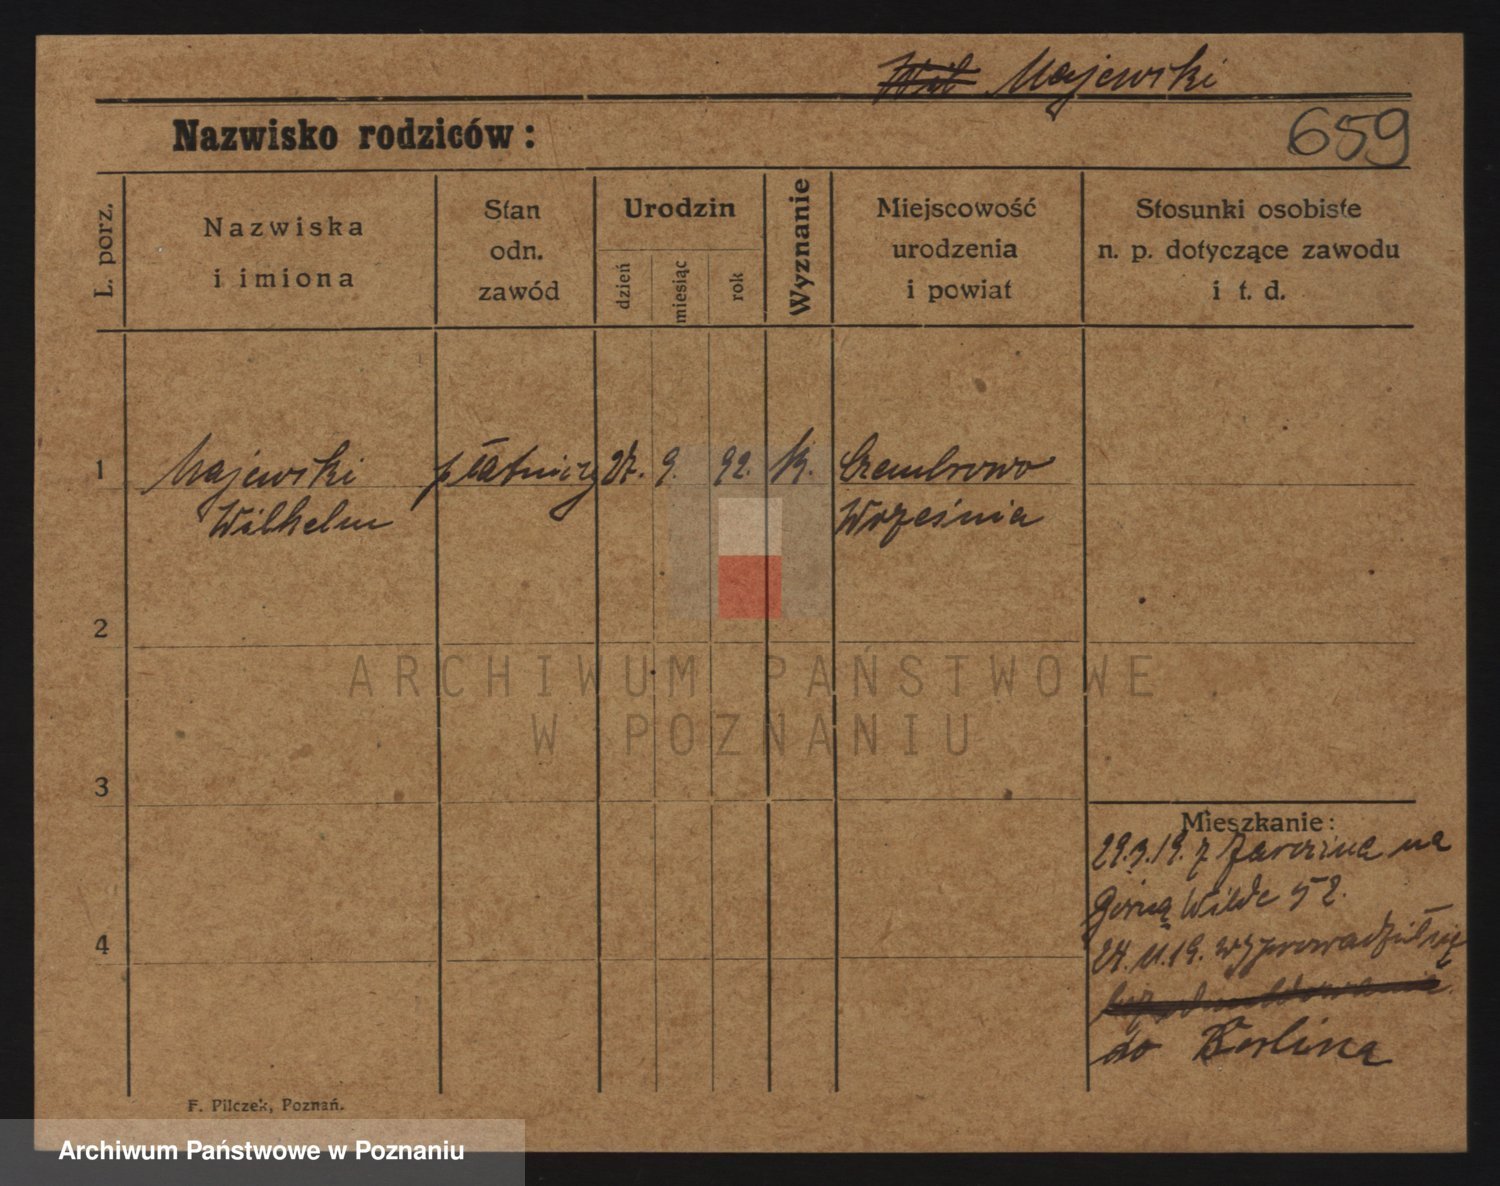 Majewski
659
Nazwisko rodziców:
L. porz.
Nazwiska
i imiona
Stan
odn.
zawód
Urodzin
dzień
miesiąc
rok
Wyznanie
Miejscowość
urodzenia
i powiat
Stosunki osobiste
n. p. dotyczące zawodu
i t. d.
1 Majewski płatniczy 27. 9. 92. k. Czembrowo
Wilhelm Września
2
ARCHIWUM PAŃSTWOWE
W POZNANIU
3
Mieszkanie:
29.3.19. z Jarocina na
Górną Wildę 52.
4
24.11.19. wyprowadził się
do Berlina
F. Pilczek, Poznań.
Archiwum Państwowe w Poznaniu